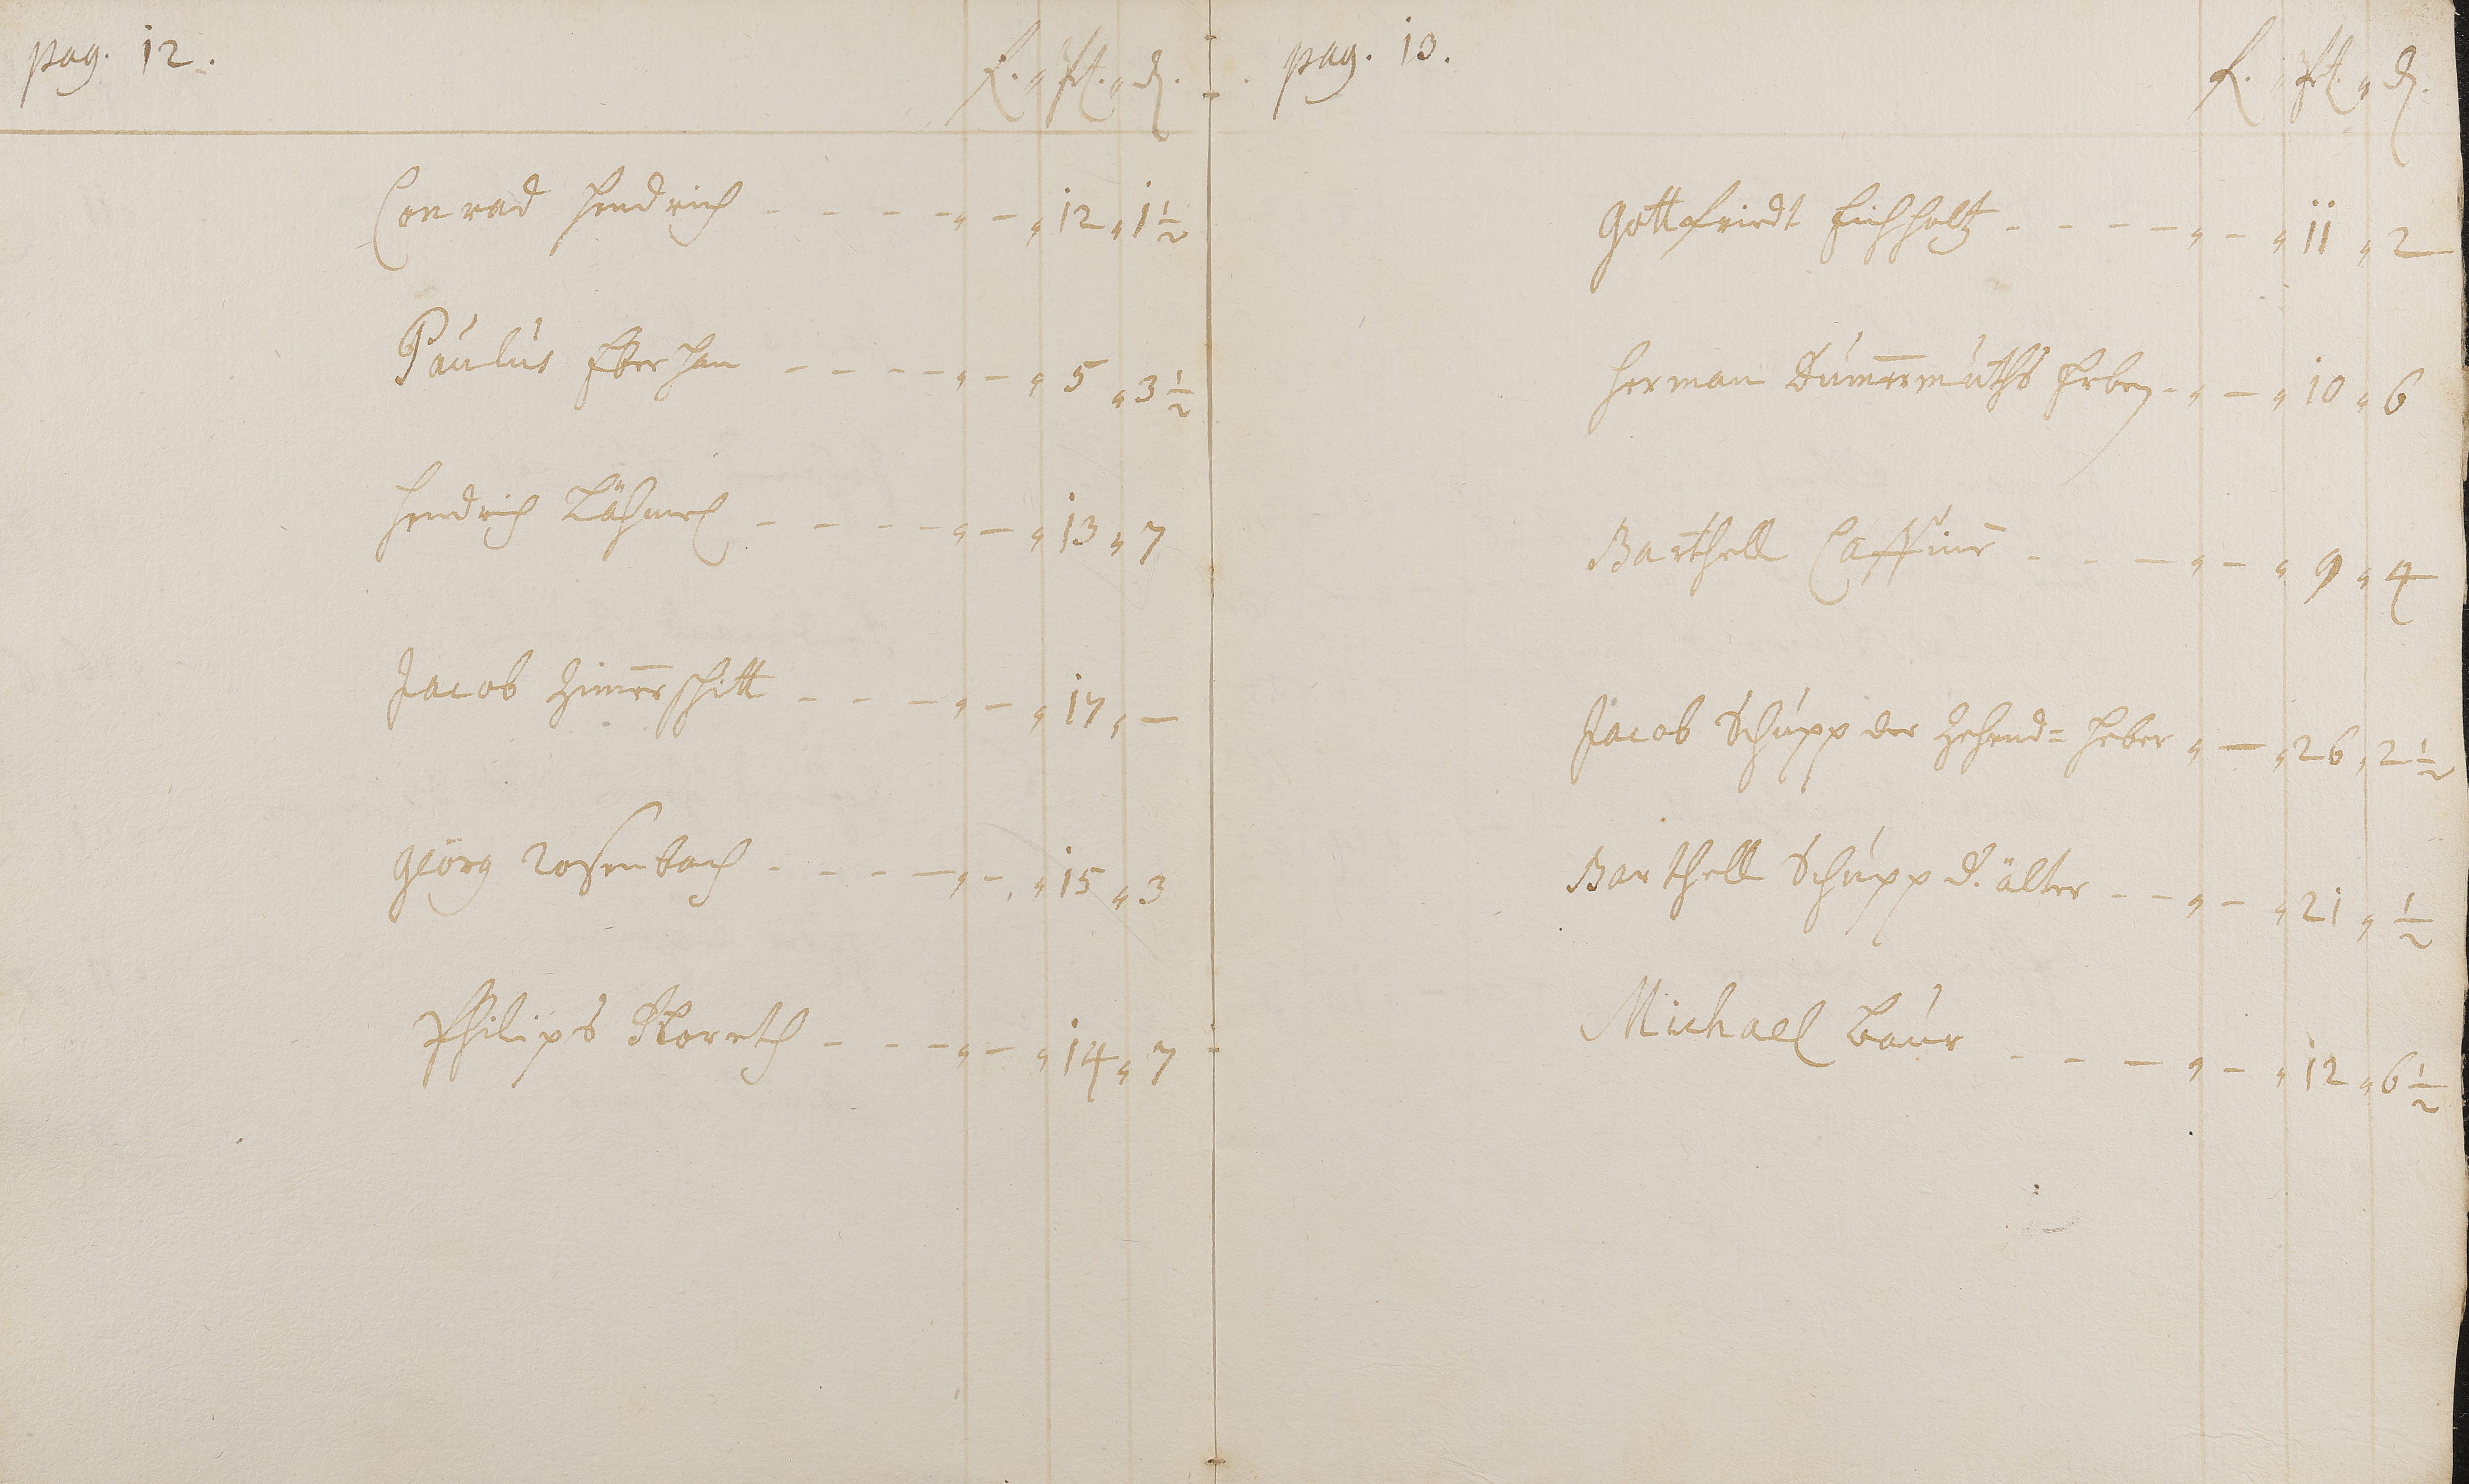 pag. 12.
f. " ß. " d.
Conrad Hendrich - - - - " - " 12 " 1 1/2
Paulus Eberhan - - - - " - " 5 " 3 1/2
Hendrich - - - - " - " 13 " 7
Jacob Zim̅erschitt - - - " - " 17 " -
Georg Rosenbach - - - - " - " 15 " 3
Philips - - - " - " 14 " 7
pag. 13.
f. " ß. " d.
Gottfriedt Eichholtz - - - - " - " 11 " 2
Herman Dum̅ermuths Erben - " - " 10 " 6
Barthell - - - " - " 9 " 4
Jacob Schupp der Zehend= heber " - " 26 " 2 1/2
Barthell Schupp d. älter - - " - " 21 " 1/2
Michael Baur - - - " - " 12 " 6 1/2